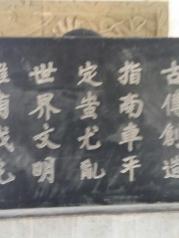 古傳創造
指南車平
定蚩尤亂
世界文明
唯有我先